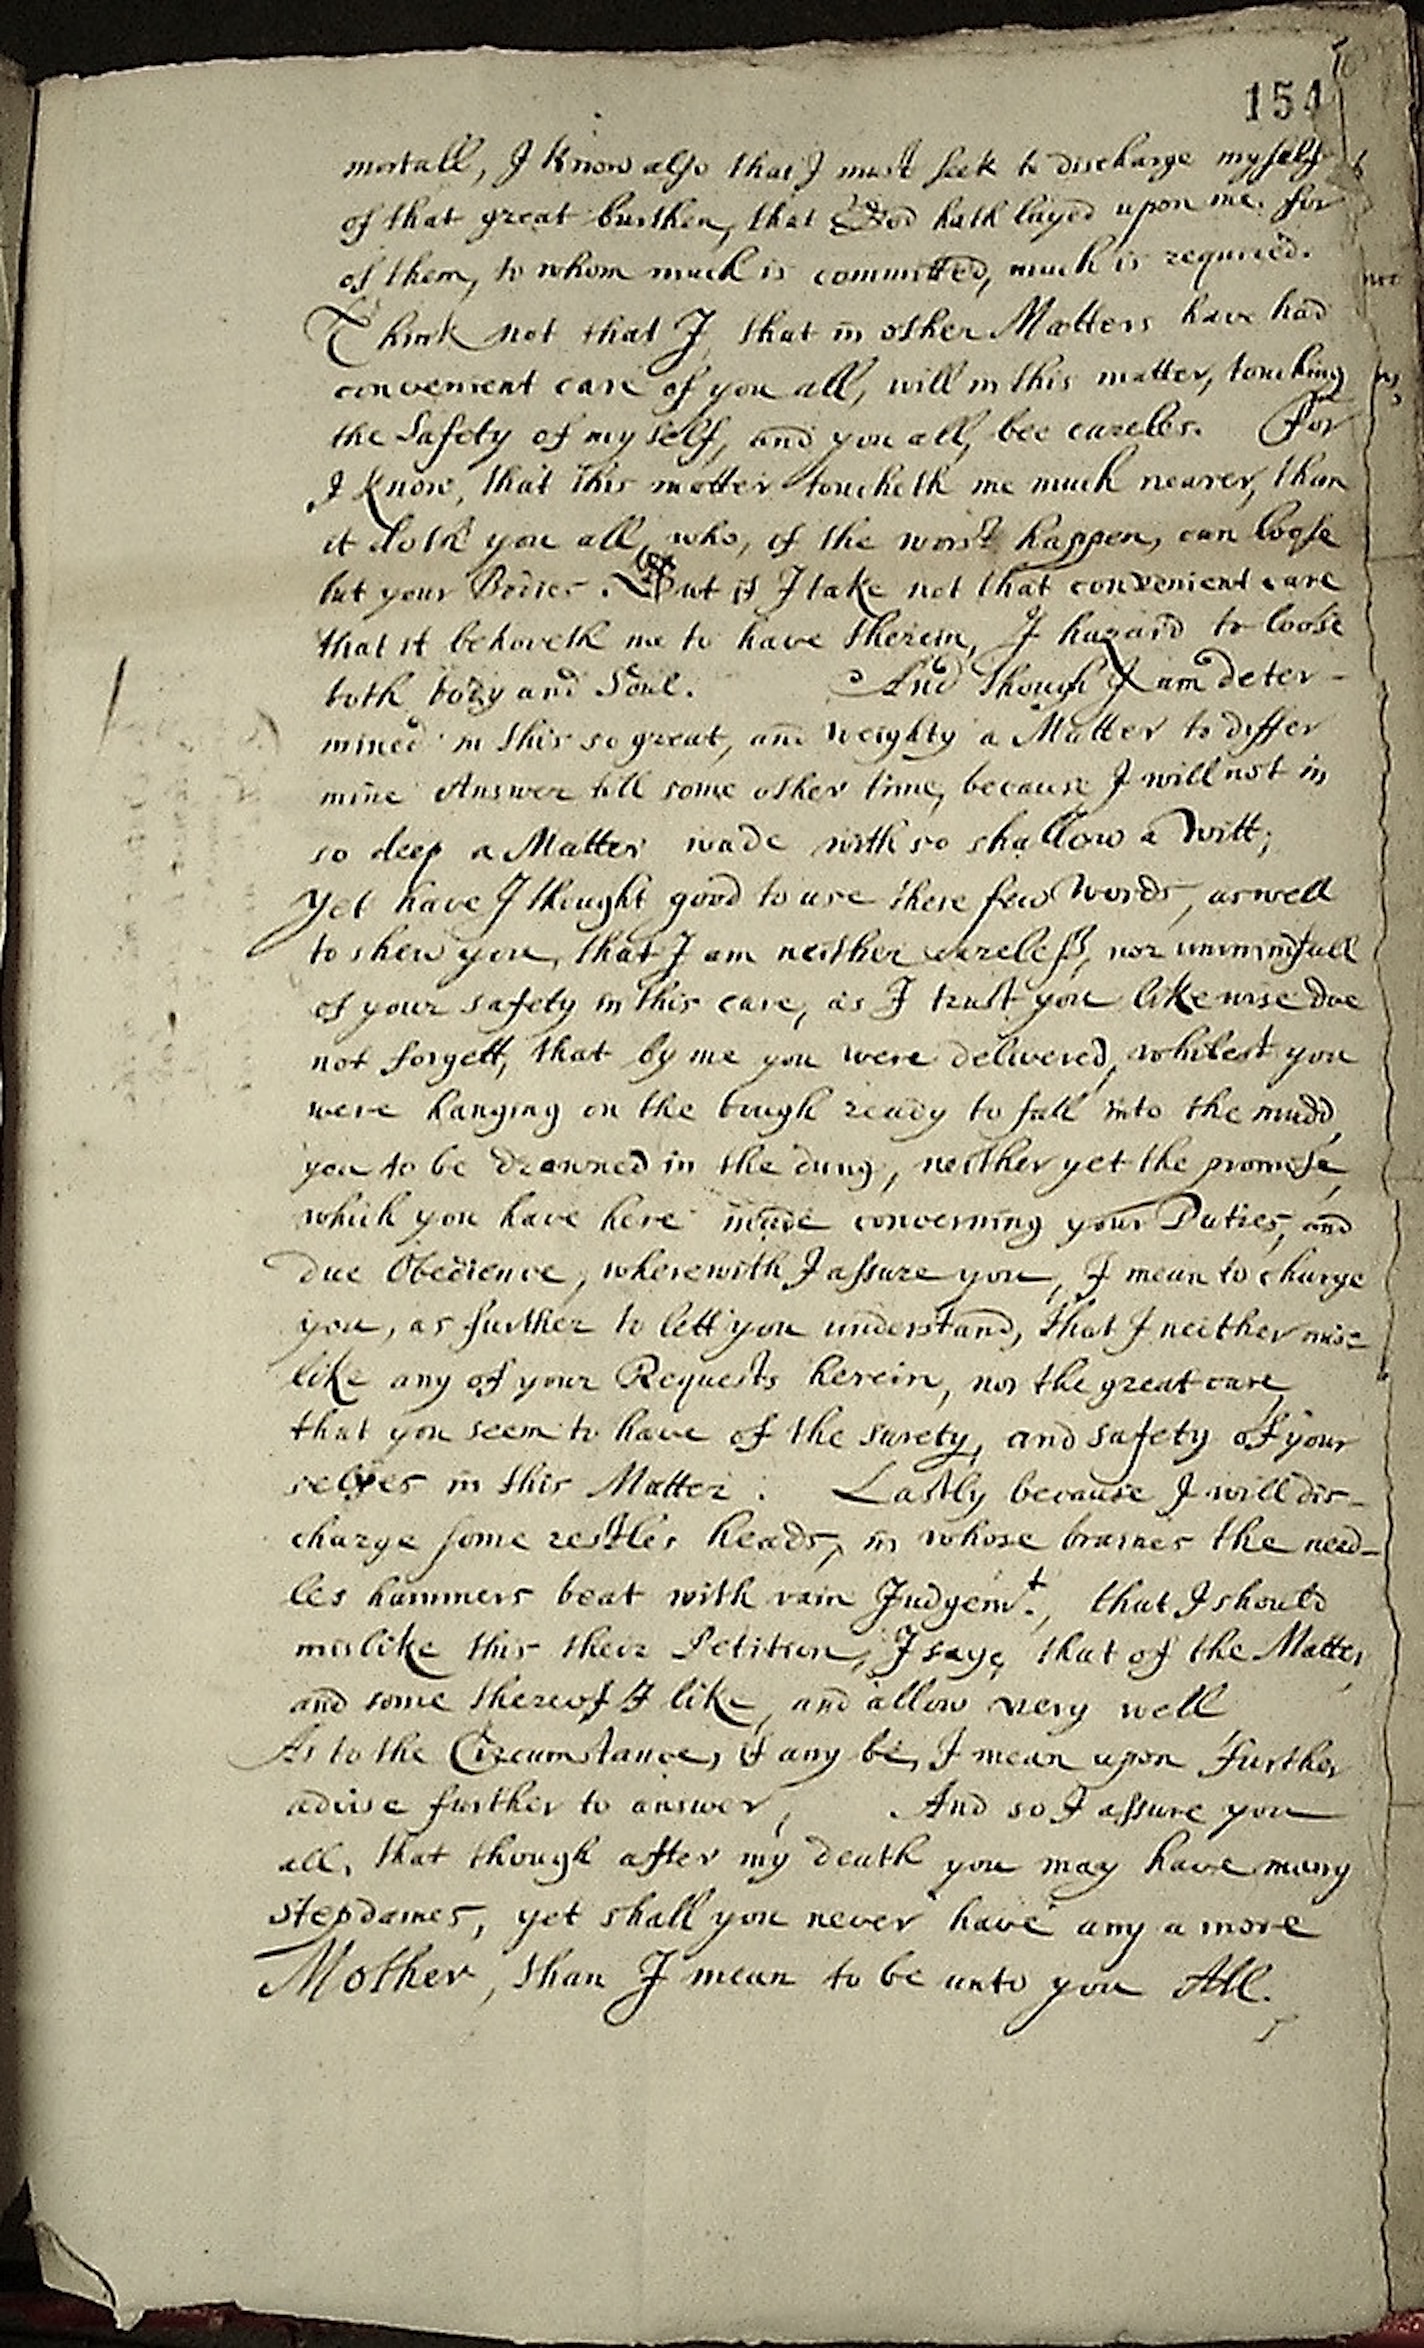 154
mortall, I know also that I must seek to discharge myself
of that great burthen, that God hath layed upon me. for
of them, to whom much is committed, much is required.
Think not that I, that in other Matters have had
convenient care of you all, will in this matter, touching
the Safety of my self, and you all, bee careles. For
I know, that this matter toucheth me much nearer, than
it doth you all, who, if the worst happen, can loose
but your Bodies. But if I take not that convenient care
that it behoveth me to have therein, I hazard to loose
both body and Soul. And though I am deter-
mined in this so great, and weighty a Matter to differ
mine Answer till some other time, because I will not in
so deep a Matter wade with so shallow a Witt;
Yet have I thought good to use these few Words, as well
to shew you, that I am neither careless, nor unmindfull
of your safety in this care, as I trust you likewise doe
not forgett, that by me you were delivered, whilest you
were hanging on the bough ready to fall into the mudd,
yea to be drowned in the dung, neither yet the promise,
which you have here made concerning your Duties, and
due Obedience, wherewith I assure you, I mean to charge
you, as further to lett you understand, that I neither mis=
like any of your Requests herein, nor the great care,
that you seem to have of the surety, and safety of your
selves in this Matter. Lastly because I will dis-
charge some restles heads, in whose braines the need-
les hammers beat with vain Judgemt., that I should
mislike this their Petition, I saye, that of the Matter
and some thereof I like, and allow very well
As to the Circumstances, if any be, I mean upon further
advise further to answer, And so I assure you
all, that though after my death you may have many
stepdames, yet shall you never have any a more
Mother, than I mean to be unto you All.